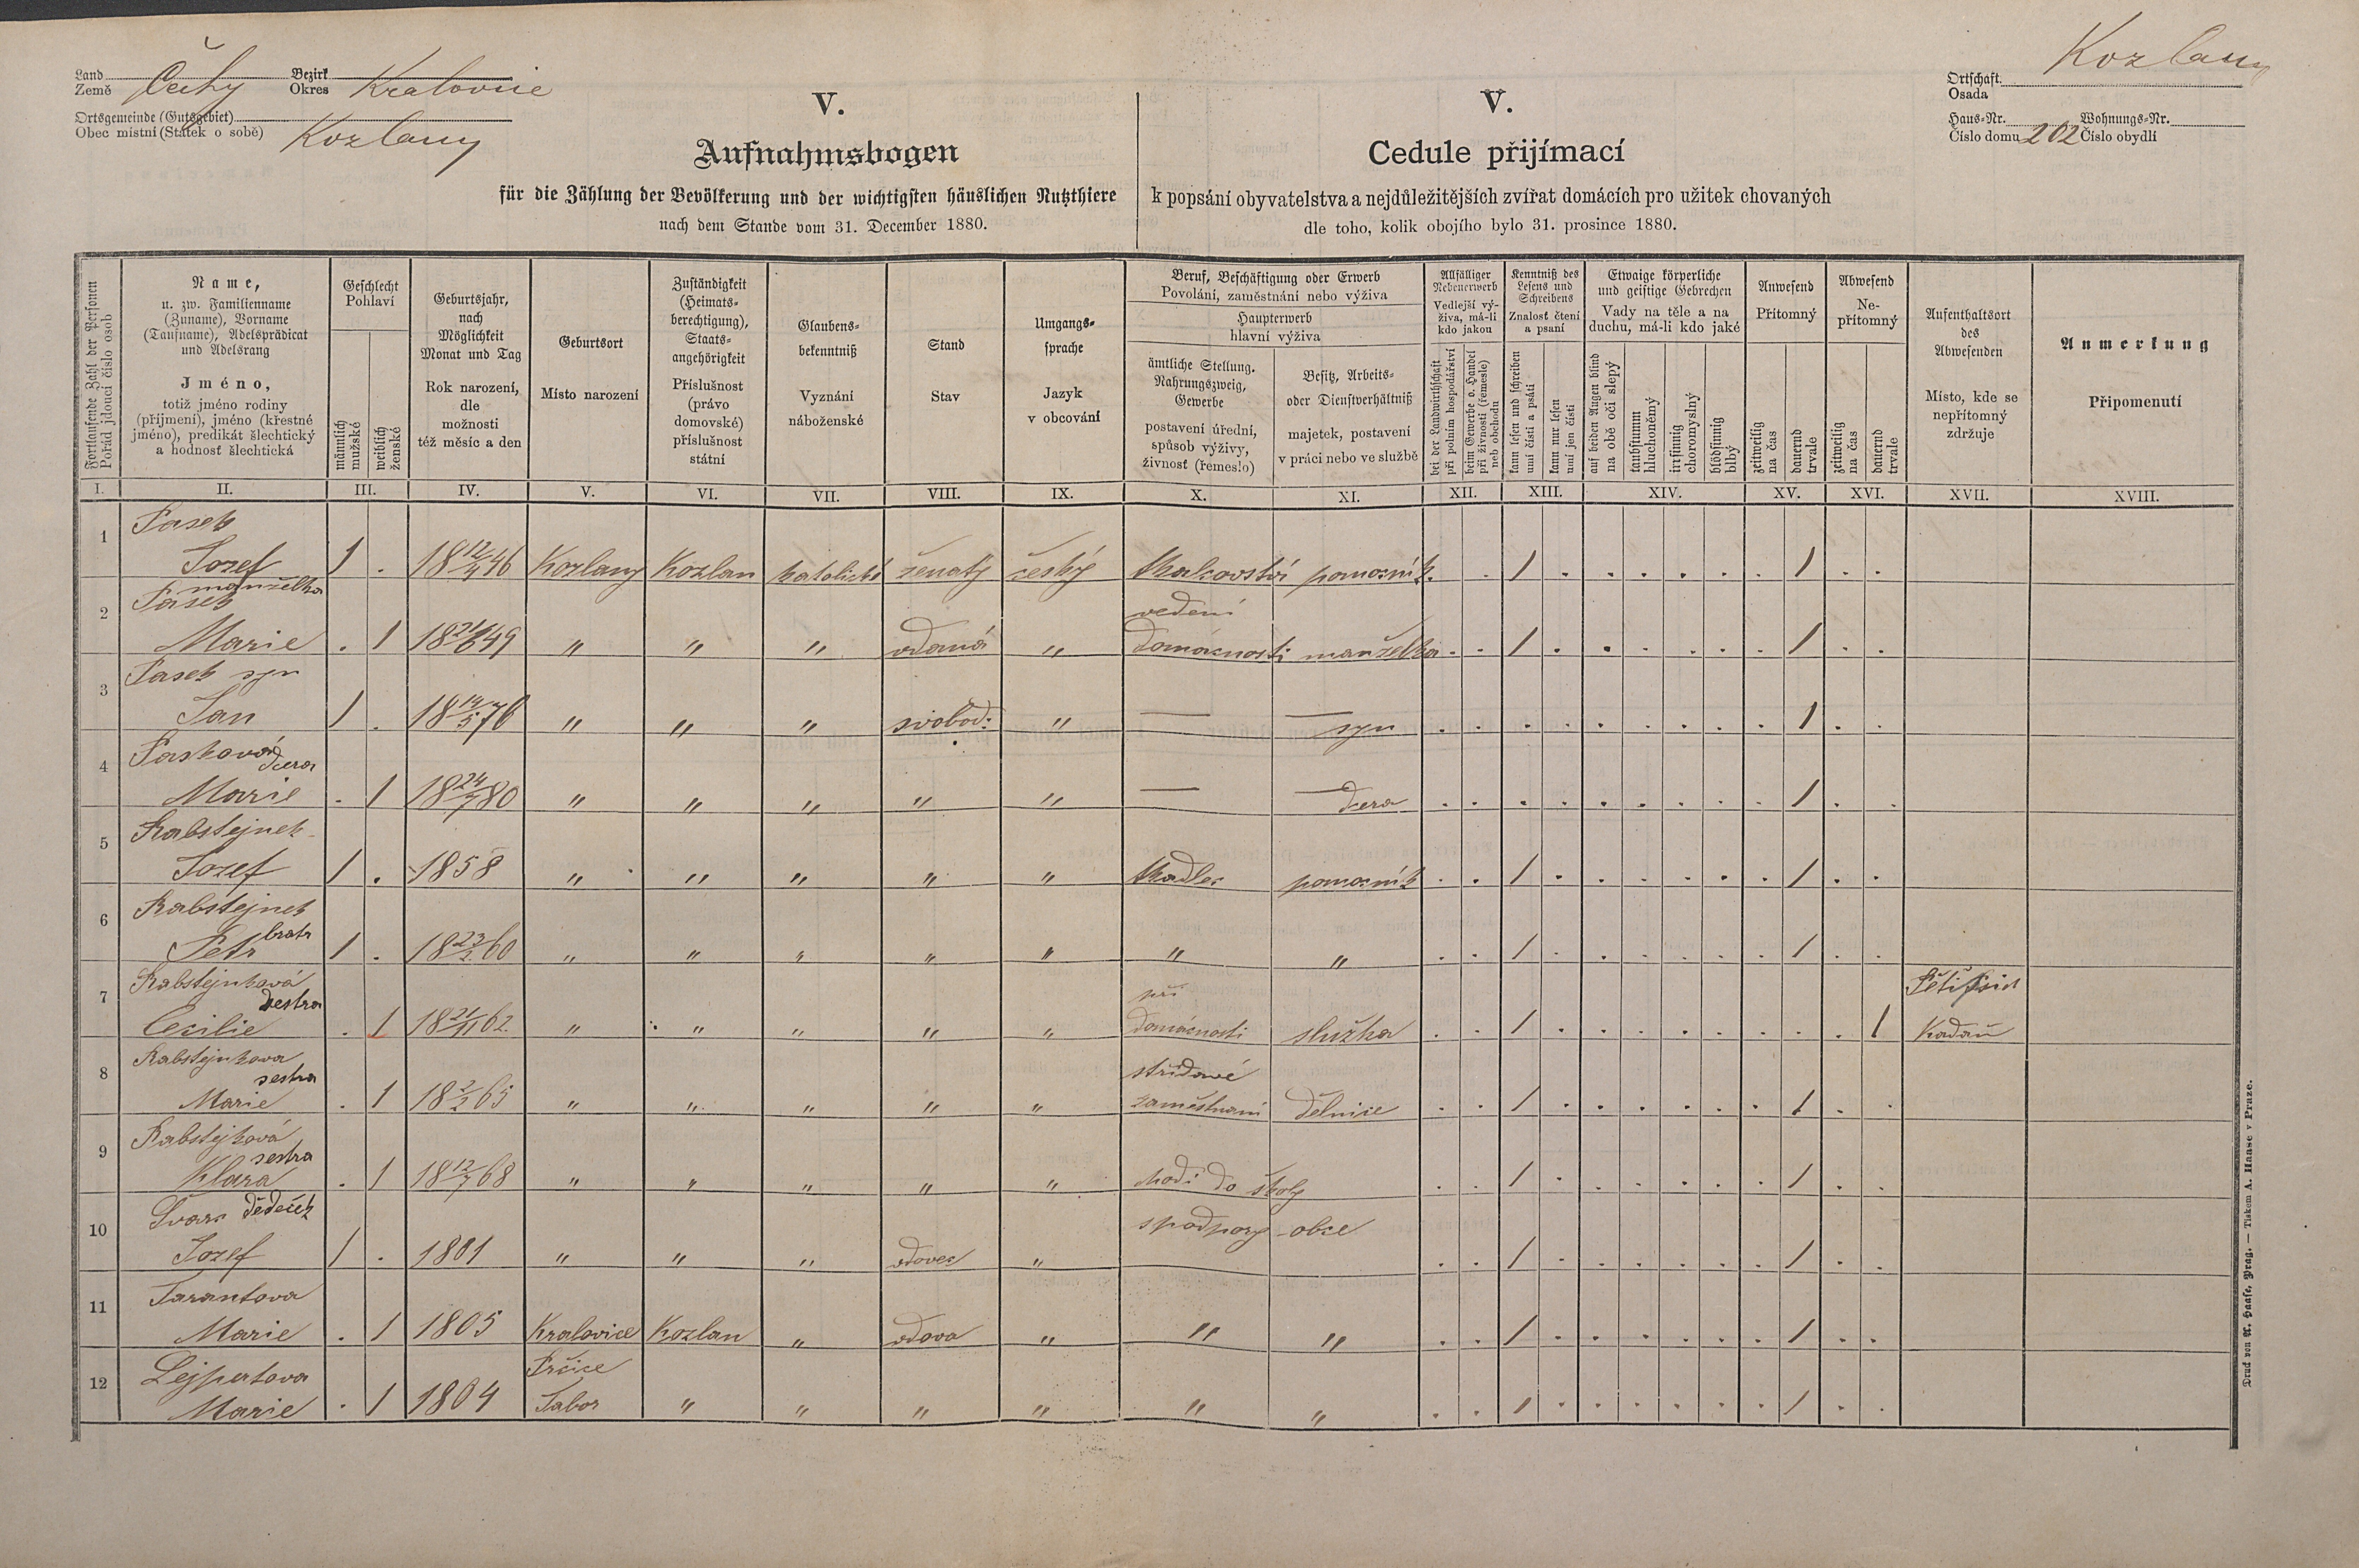 Land Čechy Bezirk Kralovice
Země Okres
Ortsgemeinde (Gutsgebiet)
Obec místní (Statek o sobě) Kozlany
V.
Aufnahmsbogen
für die Zählung der Bevölkerung und der wichtigsten häuslichen Nutzthiere
nach dem Stande vom 31. December 1880.
V.
Cedule přijímací
k popsání obyvatelstva a nejdůležitějších zvířat domácích pro užitek chovaných
dle toho, kolik obojího bylo 31. prosince 1880.
Ortschaft Kozlany
Osada
Haus-Nr. Wohnungs-Nr.
Číslo domu 202 Číslo obydlí
Fortlaufende Zahl der Personen
Pořád jdoucí číslo osob
Name,
u. zw. Familienname
(Zuname), Vorname
(Taufname), Adelsprädicat
und Adelsrang
Jméno,
totiž jméno rodiny
(příjmení), jméno (křestné
jméno), predikát šlechtický
a hodnosť šlechtická
Geschlecht
Pohlaví
männlich
mužské
weiblich
ženské
Geburtsjahr,
nach
Möglichkeit
Monat und Tag
Rok narození,
dle
možnosti
též měsíc a den
Geburtsort
Místo narození
Zuständigkeit
(Heimats-
berechtigung),
Staats-
angehörigkeit
Příslušnost
(právo
domovské)
příslušnost
státní
Glaubens-
bekenntniß
Vyznání
náboženské
Stand
Stav
Umgangs-
sprache
Jazyk
v obcování
Beruf, Beschäftigung oder Erwerb
Povolání, zaměstnání nebo výživa
Haupterwerb
hlavní výživa
ämtliche Stellung.
Nahrungszweig,
Gewerbe
postavení úřední,
spůsob výživy,
živnosť (řemeslo)
Besitz, Arbeits-
oder Dienstverhältniß
majetek, postavení
v práci nebo ve službě
Allfälliger
Nebenerwerb
Vedlejší vý-
živa, má-li
kdo jakou
bei der Landwirthschaft
při polním hospodářství
beim Gewerbe o. Handel
při živnosti (řemesle)
neb obchodu
Kenntniß des
Lesens und
Schreibens
Znalosť čtení
a psaní
kann lesen und schreiben
umí čísti a psáti
kann nur lesen
umí jen čísti
Etwaige körperliche
und geistige Gebrechen
Vady na těle a na
duchu, má-li kdo jaké
auf beiden Augen blind
na obě oči slepý
taubstumm
hluchoněmý
irrsinnig
choromyslný
blödsinnig
blbý
Anwesend
Přítomný
zeitweilig
na čas
dauernd
trvale
Abwesend
Ne-
přítomný
zeitweilig
na čas
dauernd
trvale
Aufenthaltsort
des
Abwesenden
Místo, kde se
nepřítomný
zdržuje
Anmerkung
Připomenutí
I. II. III. IV. V. VI. VII. VIII. IX. X. XI. XII. XIII. XIV. XV. XVI. XVII. XVIII.
1 Pasek
Jozef 1 . 18 12/4 46 Kozlany Kozlan katolické ženatý český tkalcovství pomocník . . 1 . . . . . . 1 . .
manželka
2 Pasek vedení
Marie . 1 1849 " " " vdaná " domácnosti manželka . . 1 . . . . . . 1 . .
3 Pasek syn
Jan 1 . 18 19/5 76 " " " svobod: " — — syn . . . . . . . . . 1 . .
4 Pasková dcera
Marie . 1 18 24/7 80 " " " " " — — dcera . . . . . . . . . 1 . .
5 Rabstejnek
Jozef 1 . 1858 " " " " " tkadlec pomocník . . 1 . . . . . . 1 . .
6 Rabstejnek
bratr
Petr 1 . 18 23/2 60 " " " " " " " . . 1 . . . . . . 1 . .
7 Rabstejnková při
sestra
Cecilie . 1 18 21/11 62 " " " " " domácnosti služka . . 1 . . . . . . . . 1 Kadaň
8 Rabstejnkova střídavé
sestra
Marie . 1 18 2/2 65 " " " " " zaměstnaní dělnice . . 1 . . . . . . 1 . .
9 Rabstejková
sestra
Klara . 1 18 12/7 68 " " " " " chodí do školy . . 1 . . . . . . 1 . .
10 Svarc dědeček s podpory obce
Jozef 1 . 1801 " " " vdovec " . . 1 . . . . . . 1 . .
11 Tarantova
Marie . 1 1805 Kralovice Kozlan " vdova " " " . . 1 . . . . . . 1 . .
12 Lejpertova Prčice
Marie . 1 1804 Tabor " " " " " " . . 1 . . . . . . 1 . .
Druck von A. Haase, Prag. — Tiskem A. Haase v Praze.